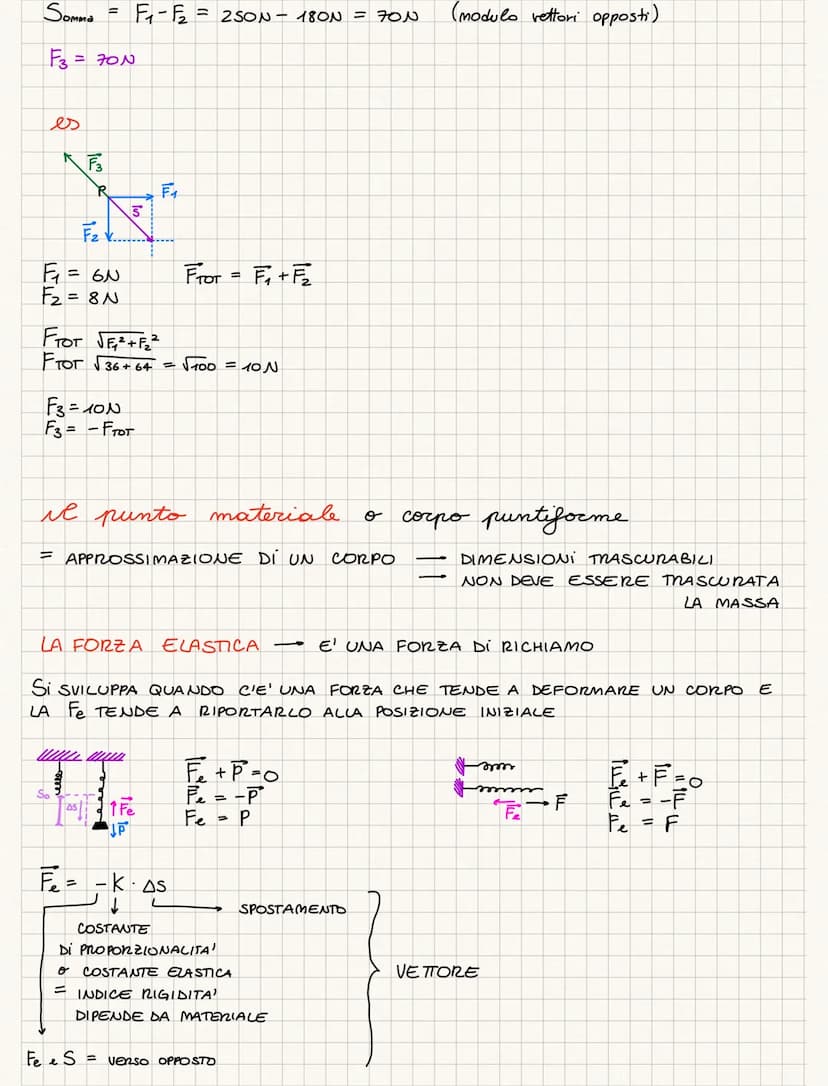 Somma = F₁-F₂ = 250N - 180N = 70N (modulo vettori opposti)
F₃ = 70N
es
F⃗₃
P
F⃗₁
s⃗
F⃗₂
F₁ = 6N F⃗TOT = F⃗₁ + F⃗₂
F₂ = 8N
FTOT √F₁²+F₂²
FTOT √36+64 = √100 = 10N
F₃ = 10N
F₃ = -FTOT
il punto materiale o corpo puntiforme
= APPROSSIMAZIONE Di UN CORPO — DIMENSIONi TRASCURABILI
— NON DEVE ESSERE TRASCURATA
LA MASSA
LA FORZA ELASTICA → E' UNA FORZA Di RICHIAMO
Si SVILUPPA QUANDO C'E' UNA FORZA CHE TENDE A DEFORMARE UN CORPO E
LA Fe TENDE A RIPORTARLO ALLA POSIZIONE INIZIALE
F⃗e + P⃗ = 0
F⃗e = -P⃗
Fe = P
S₀
ΔS
↑F⃗e
↓P⃗
F⃗e
→ F⃗
F⃗e + F⃗ = 0
F⃗e = -F⃗
Fe = F
F⃗e = -K · ΔS
SPOSTAMENTO
COSTANTE
Di PROPORZIONALITA'
o COSTANTE ELASTICA
= INDICE RIGIDITA'
DIPENDE DA MATERIALE
VETTORE
Fe e S = VERSO OPPOSTO